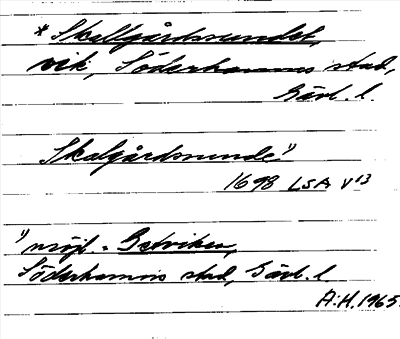 * Skallgårdsundet,
vik, Söderhamns stad,
Gävl. l.
Skalgårdsunde 1)
1698 LSA V 13
1) möjl. =
Söderhamns stad, Gävl. l.
A.H. 1965.